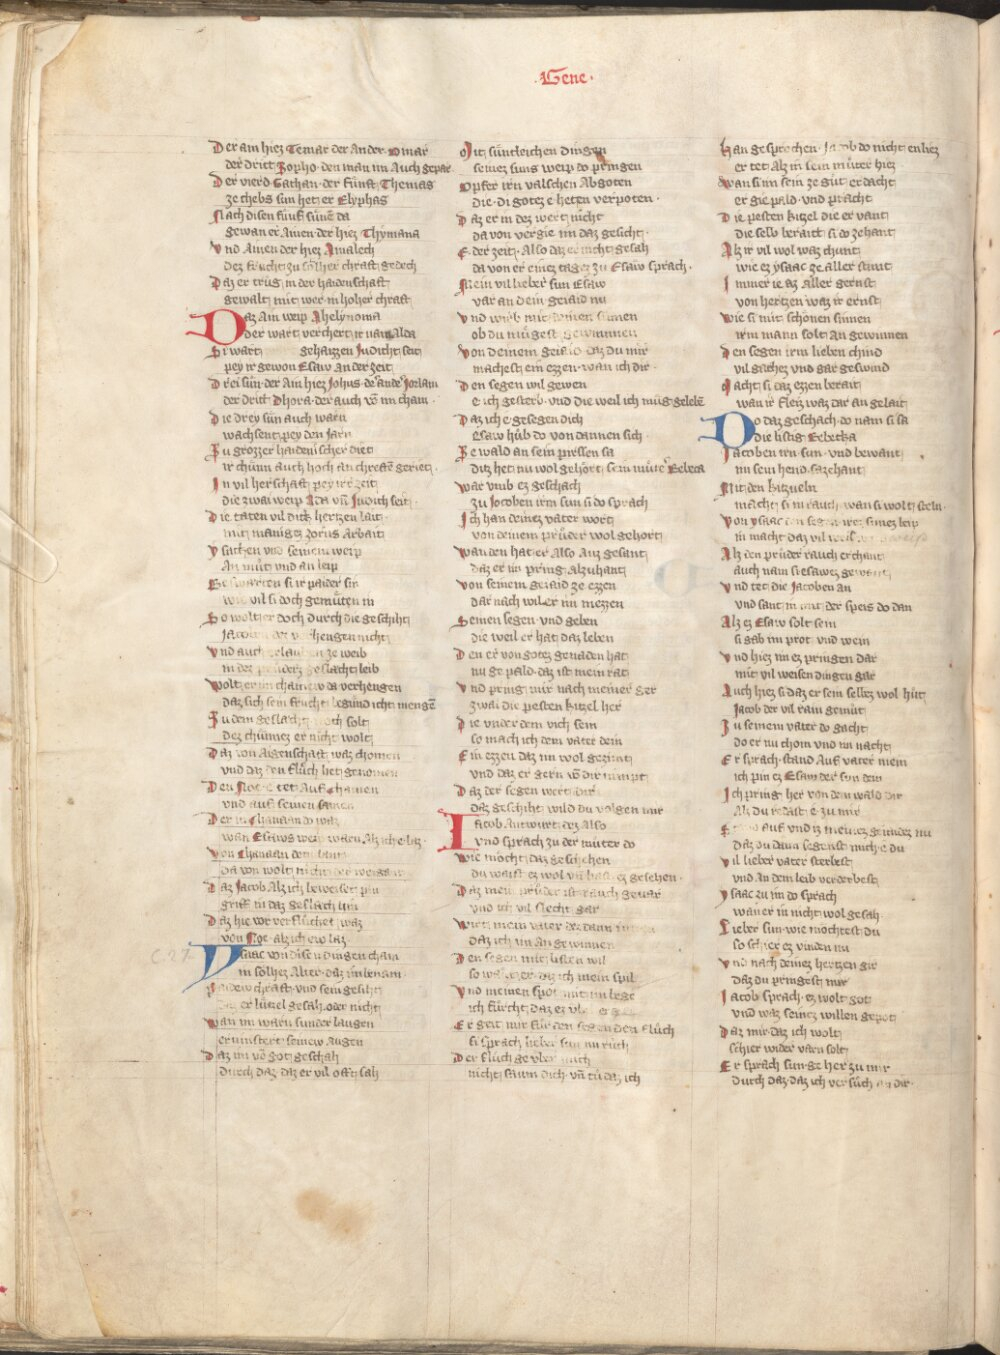 Gene
Der ain hiez Temar der ander Omar
der dritt Sopho den man im auch gepar
Der vierd Gathan der fünft Themas
ze chebs sun het er Elyphas
Nach disen fünf sünē da
gewan er Amen der hiez Thymana
Vnd Amen der hiez Amalech
dez frucht zu solher chraft gedech
Daz er trüg in der haidenschaft
gewalt mit wer in hoher chraft
Daz ain weip Ahelynoma
der wart verchert ir nam Alda
Si wart gehaizzen Judicht seit
pey ir gewon Esaw an der zeit
Drei sün der ain hiez Johus der ander Jorlam
der dritt Dhora der auch vō im cham
Die drey sün auch warn
wachsent pey den Jarn
Zu grozzer haidenischer diet
ir chünn auch hoch an chreftē geriet
In vil herschaft pey irr zeit
die zwai weip Ada vn̄ Judich seit
Die taten vil dick hertzen lait
mit maniges zorns arbait
Ysacken vnd seinem weip
an müt vnd an leip
Beswarten si ir paider sin
wie vil si doch gemüten in
So wolt er doch durch die geschiht
Jacoben verhengen nicht
Vnd auch erlauben ze weib
in dez prüderz geslacht leib
Wolt er in chainew da verhengen
daz sich sein frucht begünd icht mengē
Zu dem geslacht noch solt
dez chünnes er nicht wolt
Daz von aigenschaft waz chomen
vnd daz den flüch het genomen
Den Noe e tet auf Chamen
vnd auf seinen samen
Der in Chanaan do waz
wan Esaws weip warn alz ich e laz
Von Chanaan dem lant
da von wolt nicht der weigant
Daz Jacob alz ich beweiset pin
griff in daz geslächt hin
Daz hie vor verflüchet waz
von Noe alz ich ew laz
Ysaac von disen dingen cham
in solhez alter daz im benam
sein chraft vnd sein gesiht
daz er lützel gesah oder nicht
Wan im warn sunder laugen
eruinstert seinew augen
Daz im vō got geschah
durch daz daz er vil oft sah
Mit süntleichen dingen
seinez suns weip do pringen
Opfer irn valschen abgoten
die di gotez e heten verpoten
Daz er in dez wert nicht
da von vergie im daz gesicht
E der zeit also daz er nicht gesah
da von er einez tagez zu Esaw sprach
Mein vil lieber sun Esaw
var an dein geiaid nu
Vnd wirb mit deinen sinnen
ob du mügest gewinnen
Von deinem geiaid daz du mir
machest ein ezzen wan ich dir
Den segen wil gewen
e ich gesterb vnd die weil ich müg gelebē
Daz ich e gesegen dich
Esaw hüb do von dannen sich
Ze wald an sein pirssen sa
ditz het nu wol gehort sein müter Rebeca
War vmb ez geschach
zu Jacoben irm sun si do sprach
Ich han deinez vater wort
von deinem prüder wol gehort
Wan den hat er also auz gesant
daz er im pring alzuhant
Von seinem geiaid ze ezzen
dar nach wil er im mezzen
Seinen segen vnd geben
die weil er hat daz leben
Den er von gotez genaden hat
nu ge pald daz ist mein rat
Vnd pring mir nach meiner ger
zwai die pesten kitzel her
Die vnder dem vich sein
so mach ich dem vater dein
Ein ezzen daz im wol gezimt
vnd daz er gern vō dir nimpt
Daz der segen wert dir
daz geschiht wild du volgen mir
Iacob antwurt dez also
vnd sprach zu der müter do
Wie möcht daz geschehen
du waist ez wol vnd hast ez gesehen
Daz mein prüder ist rauch gevar
vnd ich vil slecht gar
Wirt mein vater dez dann inne
daz ich im an gewinnen
Den segen mit listen wil
so wänt er daz ich mein spil
Vnd meinen spot mit im lege
ich fürcht daz ez vbel
Er geit mir für den segen den flüch
si sprach lieber sun nu rüch
Der flüch ge vber mich
nicht saum dich vn̄ tü daz ich
Han gesprochen Jacob do nicht enliez
er tet alz in sein müter hiez
Wan si im sein ze güt erdacht
er gie pald vnd pracht
Die pesten kitzel die er vant
die selb berait si do zehant
Alz ir vil wol waz chunt
wie ez ysaac ze aller stunt
Immer ie az aller gernst
von hertzen waz ir ernst
Wie si mit schönen sinnen
irm mann solt an gewinnen
Den segen irm lieben chind
vil gachez vnd gar geswind
Macht si daz ezzen berait
wan ir fleiz waz dar an gelait
Do daz geschach do nam si sa
die listig Rebecka
Jacoben irn sun vnd bewant
im sein hend sazehant
Mit den kitzueln
macht si in rauch wan si wolt steln
Von ysaac den segen irez sunez leip
in macht daz vil weis weip
Alz den prüder rauch erchant
auch nam si esawez gewant
Vnd tet die Jacoben an
vnd sant in mit der speis do dan
Alz ez Esaw solt sein
si gab im prot vnd wein
Vnd hiez im ez pringen dar
mit vil weisen dingen gar
Auch hiez si daz er sein selbez wol hüt
Jacob der vil rain gemüt
Zu seinem vater do gacht
do er nu chom vnd im nacht
Er sprach stand auf vater mein
ich pin ez Esaw der sun dein
Ich pring her von dem wald dir
alz du redast e zu mir
Stand auf vnd iz meinez geiaidez nu
daz du dann segenst mich e du
Vil lieber vater sterbest
vnd an dem leib verderbest
Ysaac zu im do sprach
wan er in nicht wol gesah
Lieber sun wie mochtest du
so schier ez vinden nu
Vnd nach deinez hertzen gir
daz du pringest mir
Jacob sprach ez wolt got
vnd waz seinez willen gepot
Daz mir daz ich wolt
schier wider varn solt
Er sprach sun ge her zu mir
durch daz daz ich versüch an dir
C. 27.